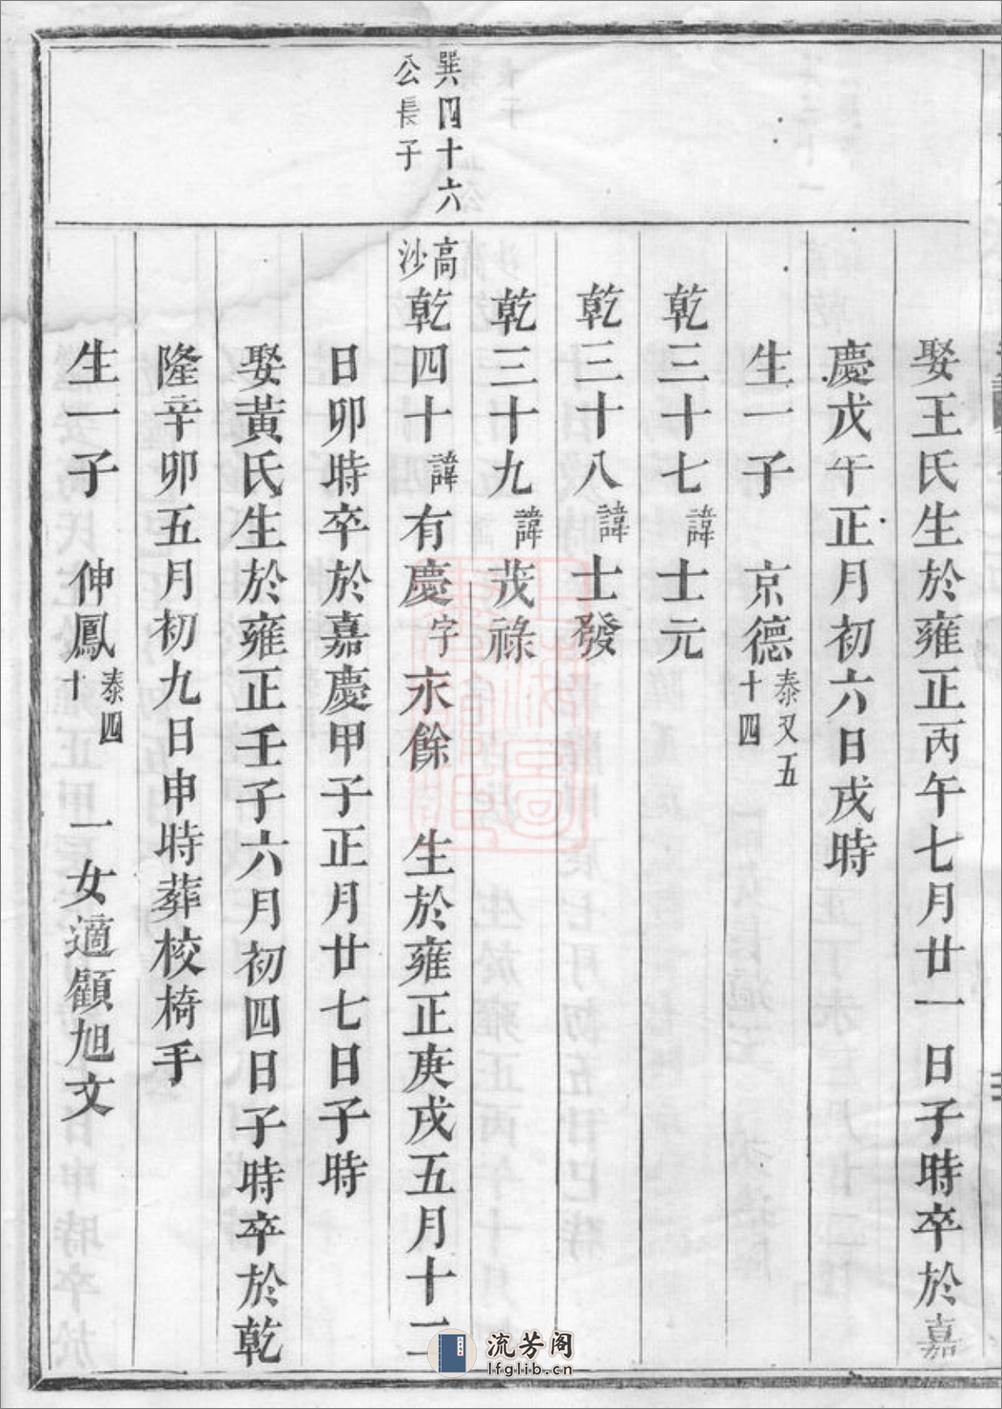 娶王氏生於雍正丙午七月廿一日子時卒於嘉
慶戊午正月初六日戌時
生一子 京德泰又五十四
乾三十七諱士元
乾三十八諱士發
乾三十九諱茂祿
巽四十六公長子
高沙乾四十諱有慶字永餘 生於雍正庚戌五月十二
日卯時卒於嘉慶甲子正月廿七日子時
娶黃氏生於雍正壬子六月初四日子時卒於乾
隆辛卯五月初九日申時葬校椅手
生一子 伸鳳泰四十 一女適顧旭文
流芳阁
lfglib.cn